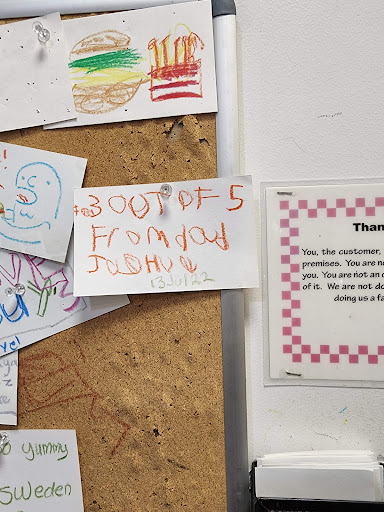 3 OUT OF 5
From dad
JOSHUA
13 Jul 22
Than
You, the customer,
premises. You are no
you. You are not an
of it. We are not do
doing us a fa
yummy
Sweden